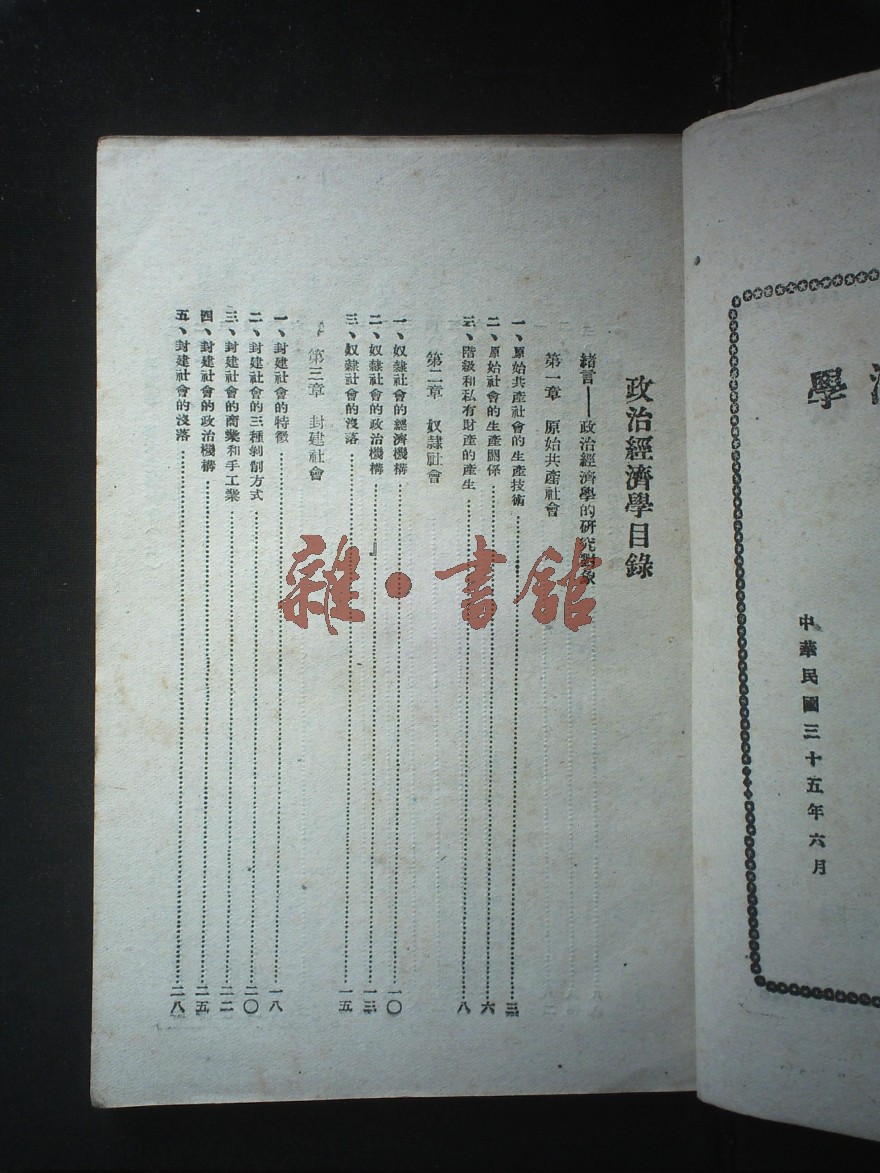 學
中華民國三十五年六月
政治經濟學目錄
緒言——政治經濟學的研究對象
第一章 原始共產社會
一、原始共產社會的生產技術……三
二、原始社會的生產關係……六
三、階級和私有財產的產生……八
第二章 奴隸社會
一、奴隸社會的經濟機構……一〇
二、奴隸社會的政治機構……一三
三、奴隸社會的沒落……一五
第三章 封建社會
一、封建社會的特徵……一八
二、封建社會的三種剝削方式……二〇
三、封建社會的商業和手工業……二二
四、封建社會的政治機構……二五
五、封建社會的沒落……二八
雜·書館